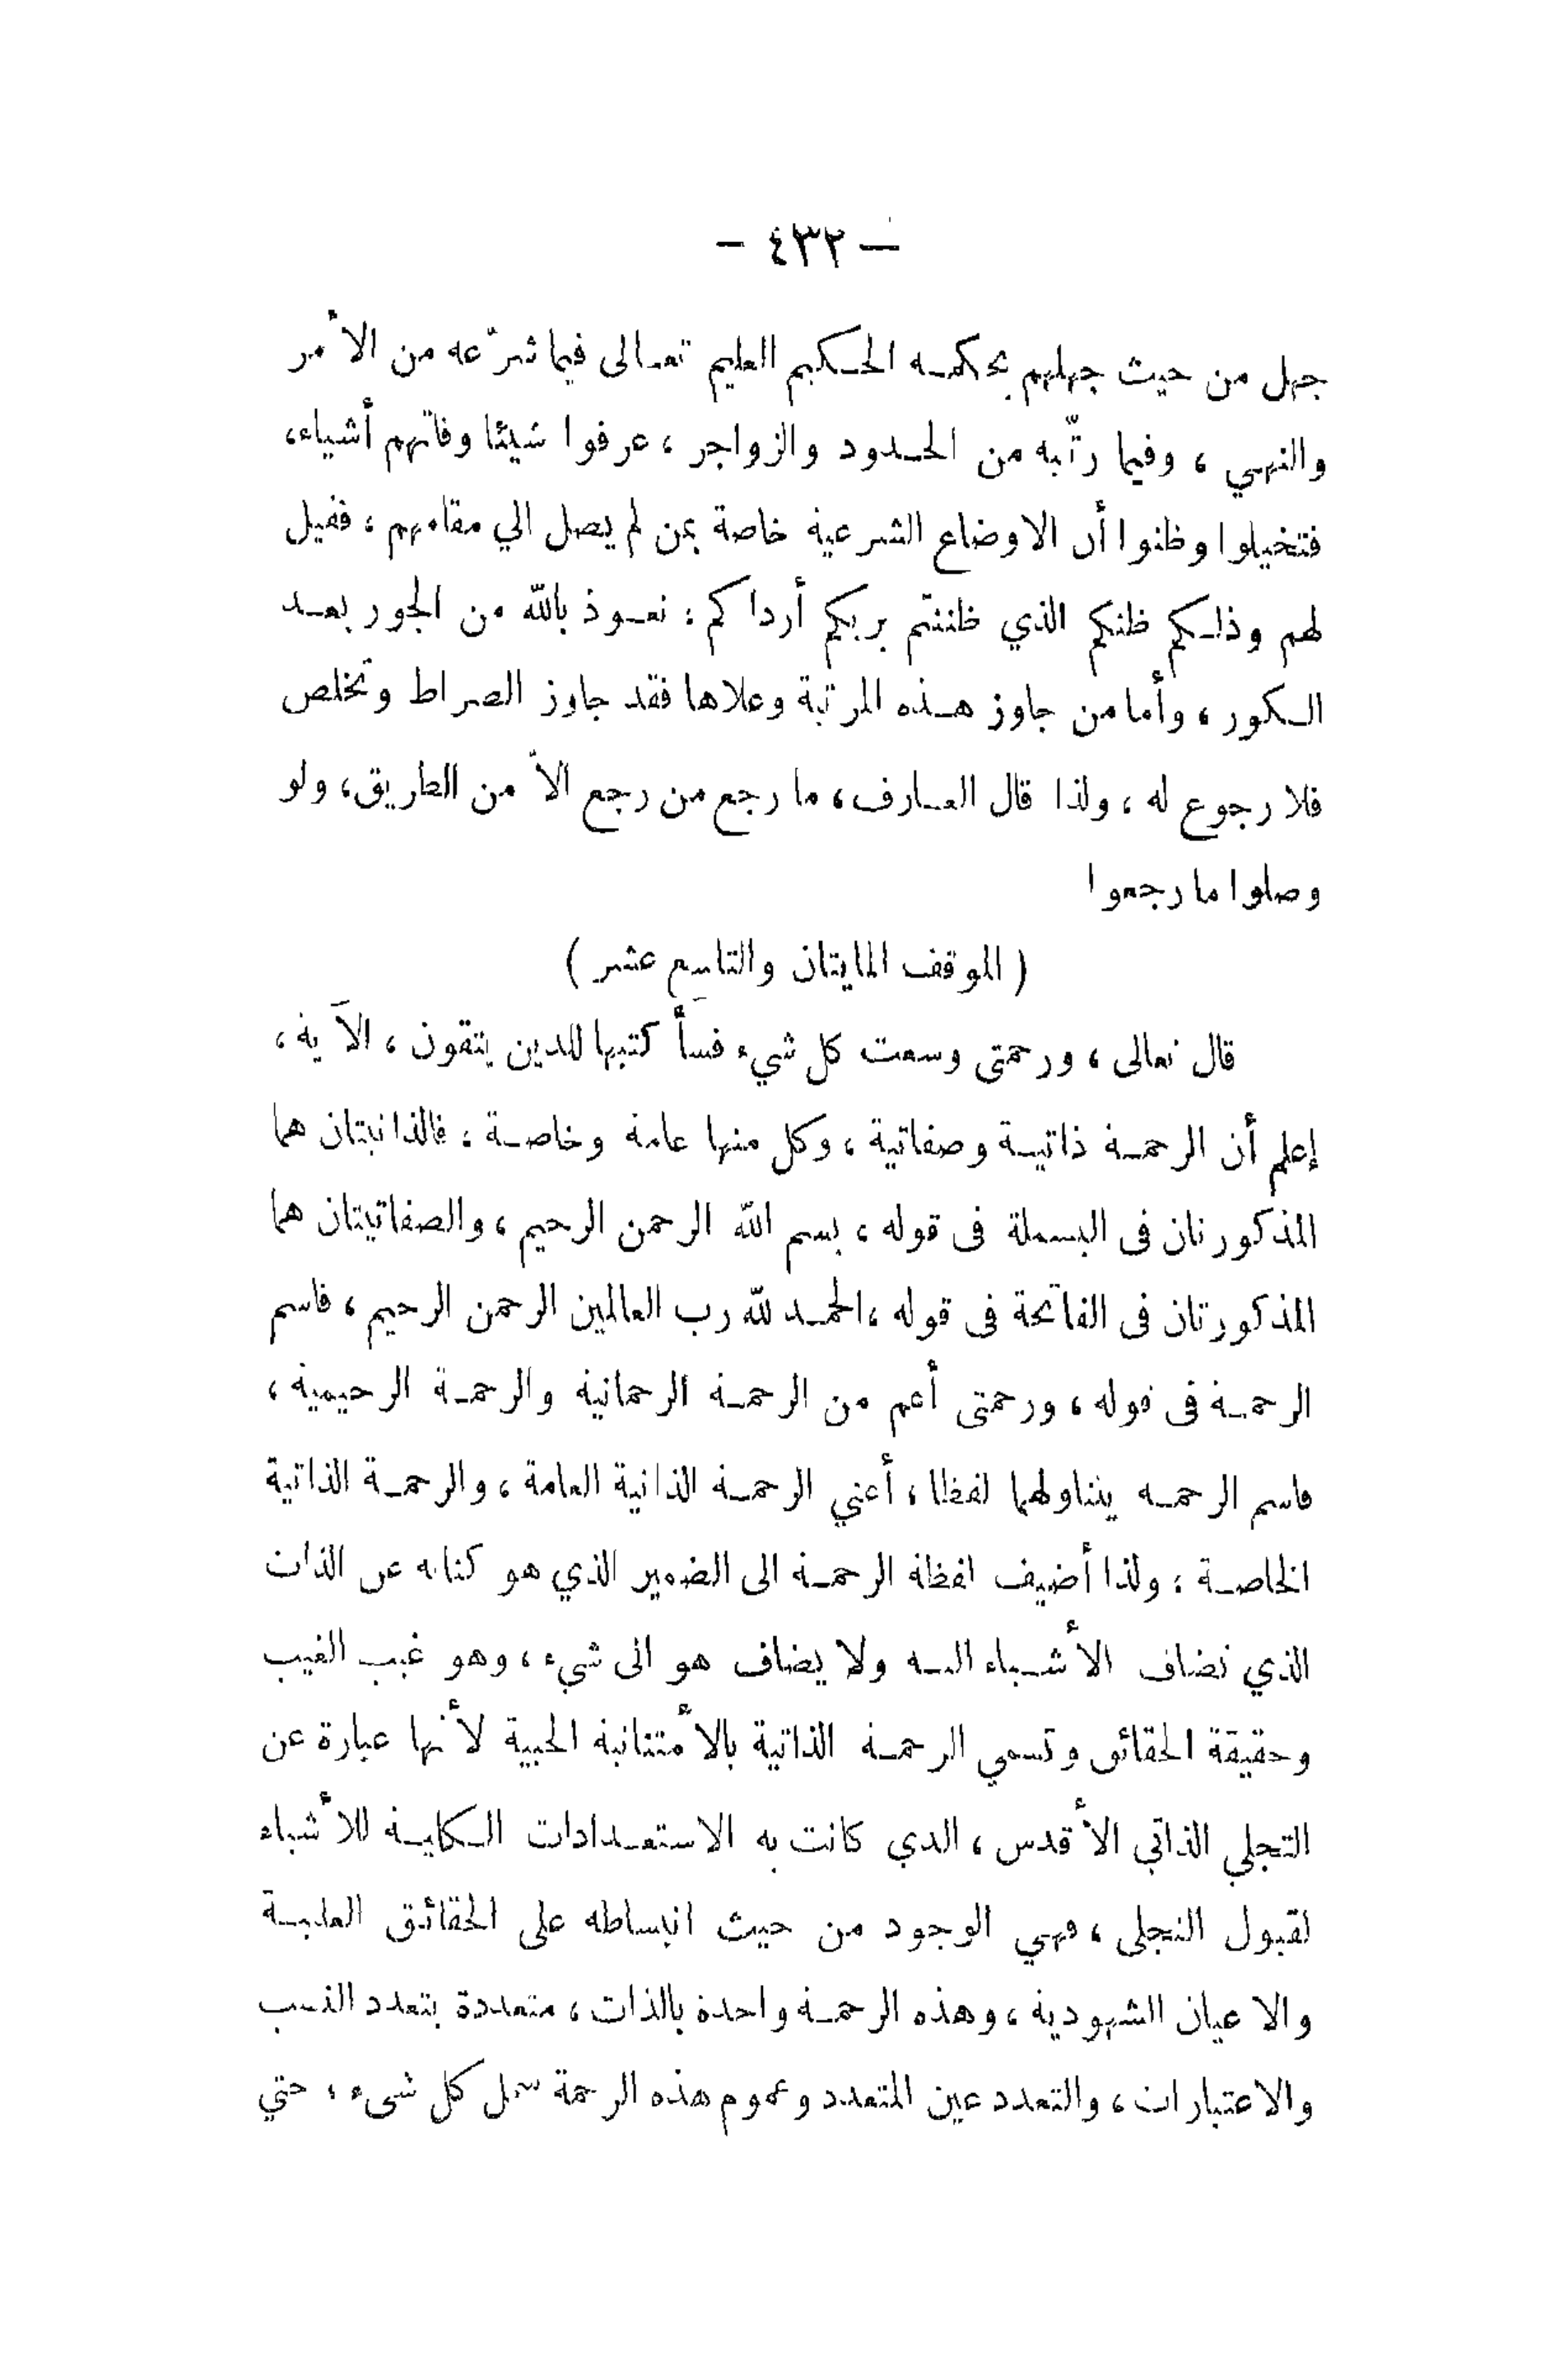 — ٤٣٢ —
جهل من حيث جهلهم بحكمة الحكيم العليم تعالى فيما شرّعه من الأمر
والنهي ، وفيما رتّبه من الحدود والزواجر ، عرفوا شيئا وفاتهم أشياء،
فتخيلوا وظنوا أن الاوضاع الشرعية خاصة بمن لم يصل الي مقامهم ، فقيل
لهم وذلكم ظنكم الذي ظننتم بربكم أرداكم ، نعوذ بالله من الجور بعد
الكور ، وأما من جاوز هذه المرتبة وعلاها فقد جاوز الصراط وتخلص
فلا رجوع له ، ولذا قال العارف ، ما رجع من رجع الاّ من الطريق، ولو
وصلوا ما رجعوا
( الموقف المايتان والتاسع عشر )
قال تعالى ، ورحمتى وسعت كل شيء فسأكتبها للذين يتقون ، الآية ،
إعلم أن الرحمة ذاتية وصفاتية ، وكل منها عامة وخاصة ، فالذاتيتان هما
المذكورتان فى البسملة فى قوله ، بسم الله الرحمن الرحيم ، والصفاتيتان هما
المذكورتان فى الفاتحة فى قوله ، الحمد لله رب العالمين الرحمن الرحيم ، فاسم
الرحمة فى قوله ، ورحمتى أعم من الرحمة الرحمانية والرحمة الرحيمية ،
فاسم الرحمة يتناولهما لفظا ، أعني الرحمة الذاتية العامة ، والرحمة الذاتية
الخاصة ، ولذا أضيف لفظة الرحمة الى الضمير الذي هو كناية عن الذات
الذي تضاف الأشياء اليه ولا يضاف هو الى شيء ، وهو غيب الغيب
وحقيقة الحقائق وتسمي الرحمة الذاتية بالأمتنانية الحبية لأنها عبارة عن
التجلي الذاتي الأقدس ، الذي كانت به الاستعدادات الكلية للأشياء
لقبول التجلى ، فهي الوجود من حيث انبساطه على الحقائق العلمية
والاعيان الشهودية ، وهذه الرحمة واحدة بالذات ، متعددة بتعدد النسب
والاعتبارات ، والتعدد عين المتعدد وعموم هذه الرحمة شمل كل شىء ، حتي